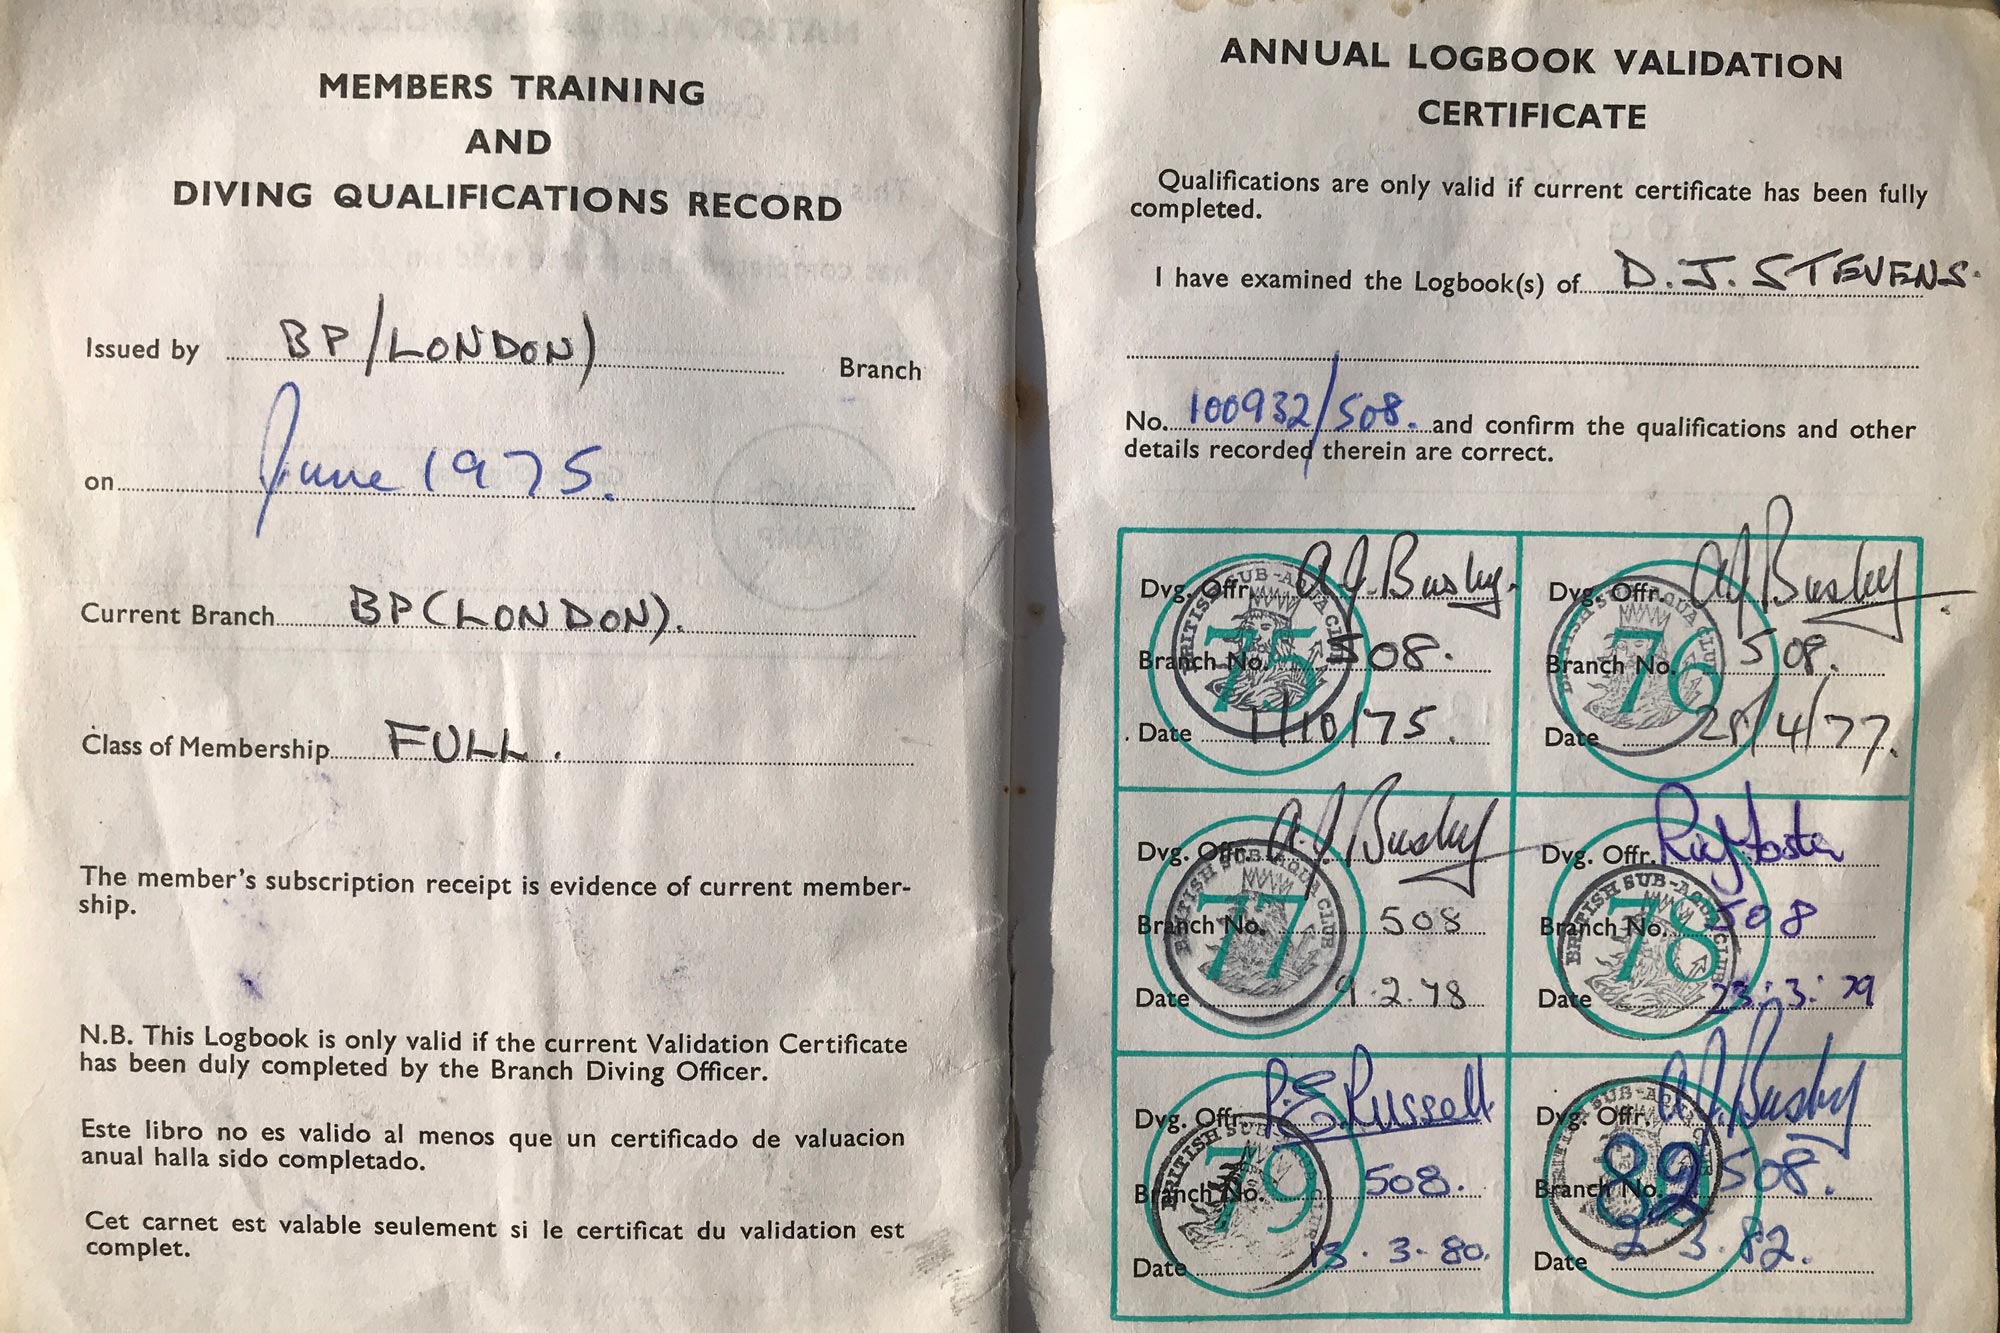 MEMBERS TRAINING
AND
DIVING QUALIFICATIONS RECORD
Issued by BP/LONDON) Branch
on June 1975.
Current Branch BP(LONDON).
Class of Membership FULL.
The member's subscription receipt is evidence of current member-
ship.
N.B. This Logbook is only valid if the current Validation Certificate
has been duly completed by the Branch Diving Officer.
Este libro no es valido al menos que un certificado de valuacion
anual halla sido completado.
Cet carnet est valable seulement si le certificat du validation est
complet.
ANNUAL LOGBOOK VALIDATION
CERTIFICATE
Qualifications are only valid if current certificate has been fully
completed.
I have examined the Logbook(s) of D.J. STEVENS.
No. 100932/508. and confirm the qualifications and other
details recorded therein are correct.
BRITISH SUB-AQUA CLUB
75
Dvg. Offr. A J. Busby.
Branch No. 508.
Date 1/10/75.
BRITISH SUB-AQUA CLUB
76
Dvg. Offr. A J Busby
Branch No. 508.
Date 28/4/77.
BRITISH SUB-AQUA CLUB
77
Dvg. Offr. A J Busby
Branch No. 508
Date 9.2.78
BRITISH SUB-AQUA CLUB
78
Dvg. Offr.
Branch No. 508
Date 23.3.79
BRITISH SUB-AQUA CLUB
79
Dvg. Offr. P.E. Russell
Branch No. 508.
Date 13.3.80.
BRITISH SUB-AQUA CLUB
82
Dvg. Offr. A J Busby
Branch No. 508.
Date 2 3.82.